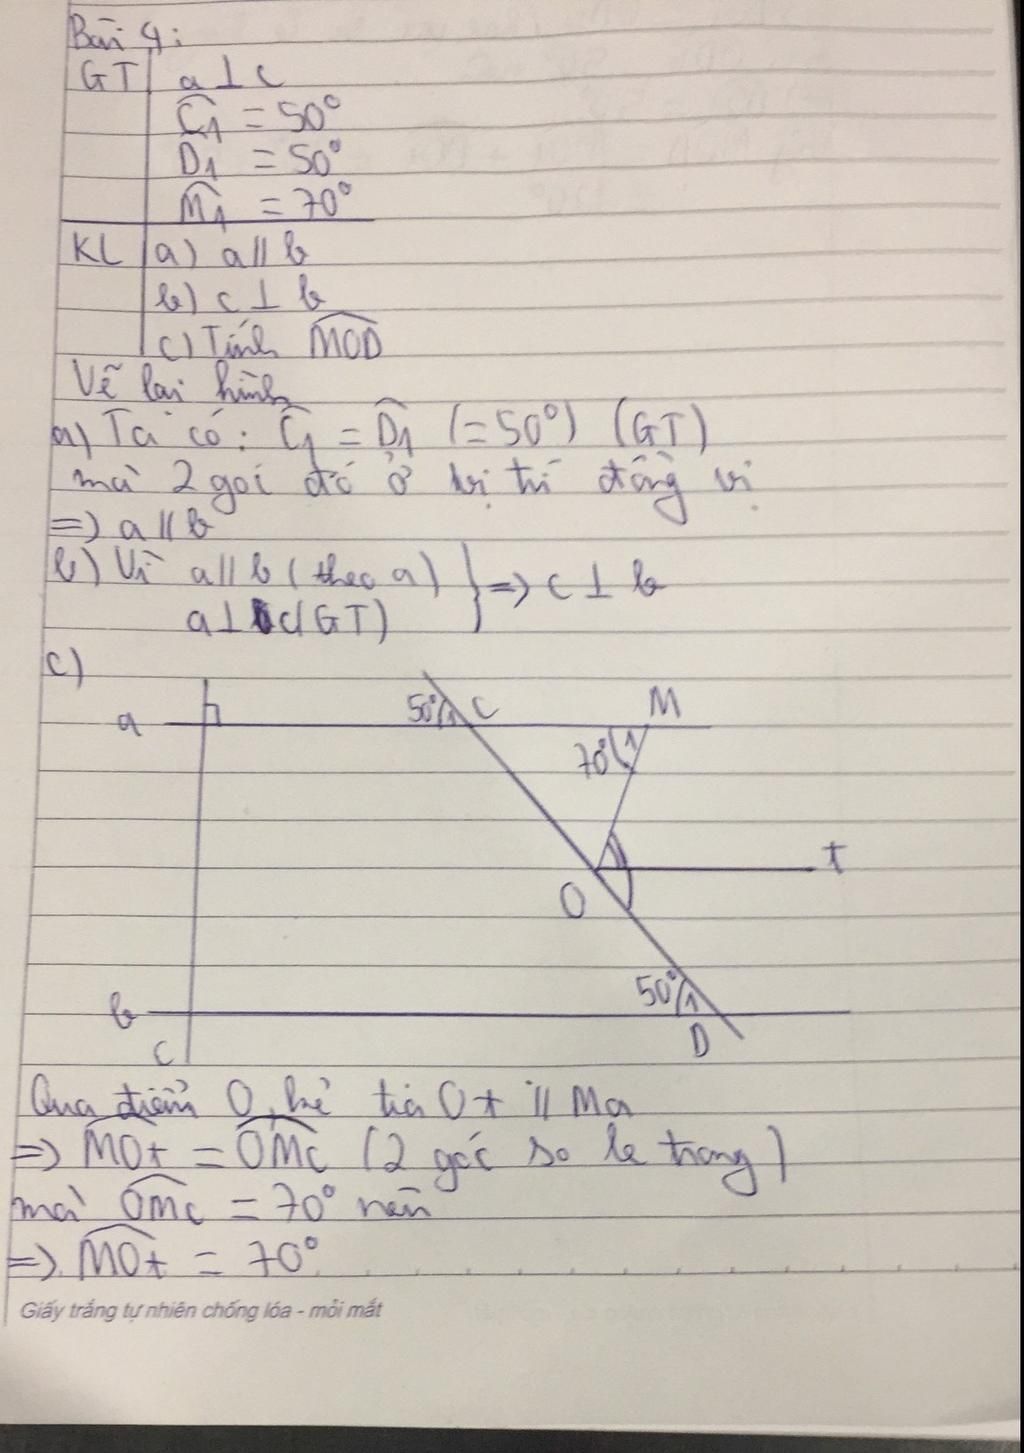 Bài 4:
GT a ⊥ c
Ĉ1 = 50°
D1 = 50°
M̂1 = 70°
KL a) a // b
b) c ⊥ b
c) Tính M̂OD
Vẽ lại hình
a) Ta có: Ĉ1 = D̂1 (= 50°) (GT)
mà 2 goi đó ở vị trí đồng vị
=> a // b
b) Vì a // b (theo a) } => c ⊥ b
a ⊥ c (GT)
c)
50° 1 C M
a
70° 1
t
O
50° 1
b
D
c
Qua điểm O, kẻ tia Ot // Ma
=> M̂Ot = ÔMC (2 góc so le trong)
mà ÔMC = 70° nên
=> M̂Ot = 70°
Giấy trắng tự nhiên chống lóa - mỏi mắt